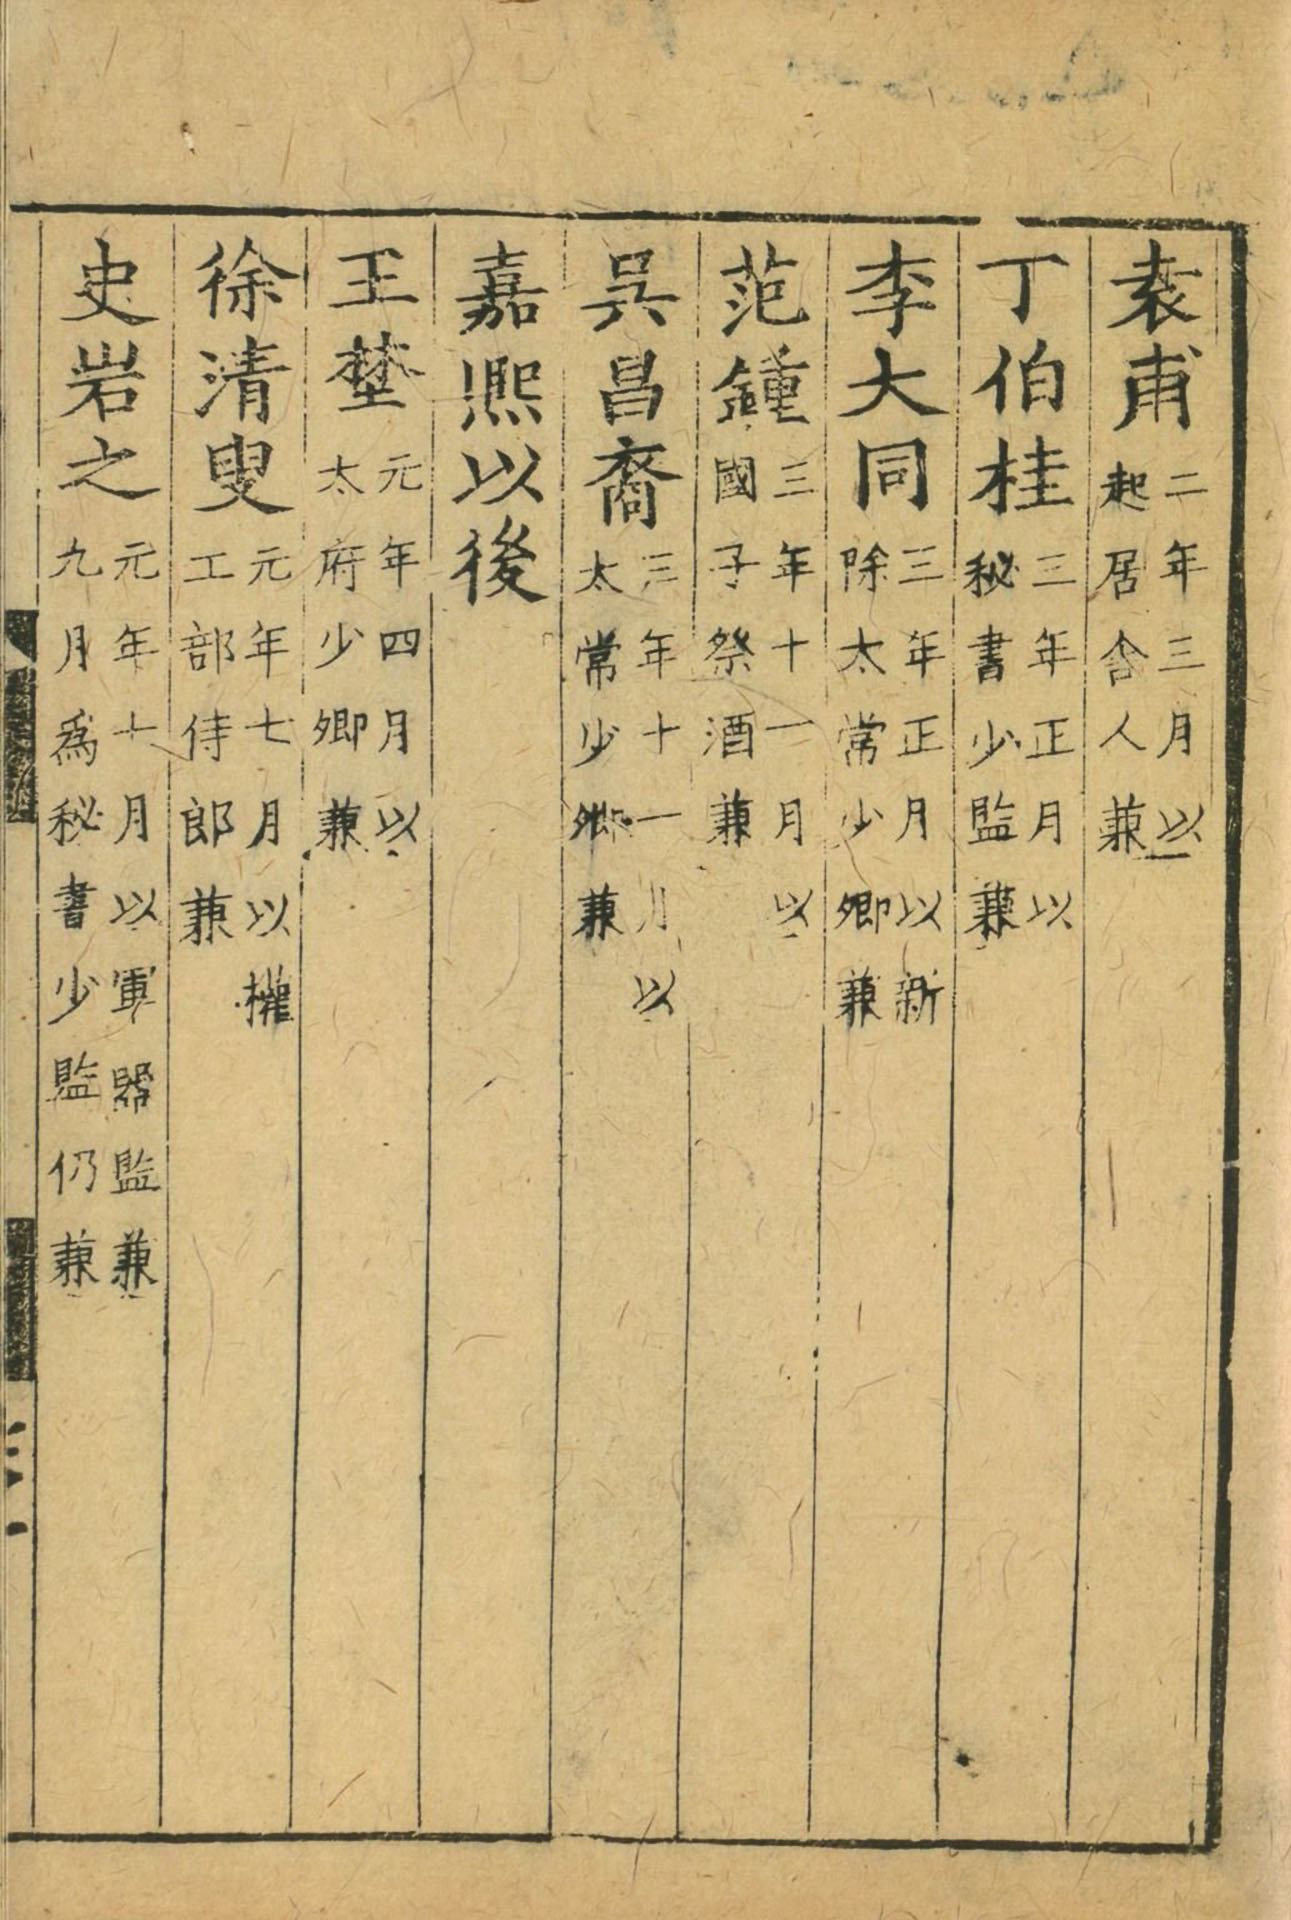 袁甫二年三月以起居舍人兼
丁伯桂三年正月以秘書少監兼
李大同三年正月以新除太常少卿兼
范鍾三年十一月以國子祭酒兼
吳昌裔三年十一月以太常少卿兼
嘉熈以後
王埜元年四月以太府少卿兼
徐清叟元年七月以權工部侍郎兼
史岩之元年十月以軍器監兼九月爲秘書少監仍兼